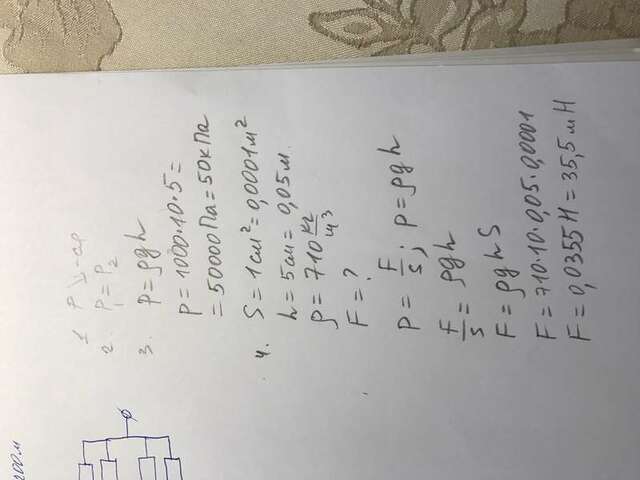 1 P ↘
2. P₁ = P₂
3. P = ρgh
P = 1000·10·5 =
= 50000 Па = 50 кПа
4. S = 1 см² = 0,0001 м²
h = 5 см = 0,05 м.
ρ = 710 кг/м³
F = ?
P = F/S; P = ρgh
F/S = ρgh
F = ρghS
F = 710·10·0,05·0,0001
F = 0,0355 Н = 35,5 мН